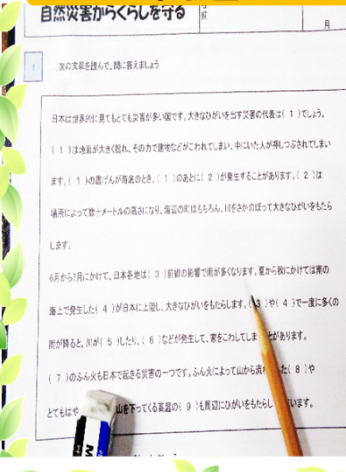 自然災害からくらしを守る
月
1 次の文章を読んで、問に答えましょう
日本は世界的に見てもとても災害が多い国です。大きなひがいを出す災害の代表は( 1 )でしょう。
( 1 )は地面が大きく揺れ、その力で建物などがこわれてしまい、中にいた人が押しつぶされてしまい
ます。( 1 )の震げんが海底のとき、( 1 )のあとに( 2 )が発生することがあります。( 2 )は
場所によって数十メートルの高さになり、海辺の町はもちろん、川をさかのぼって大きなひがいをもたら
します。
6月から7月にかけて、日本各地は( 3 )前線の影響で雨が多くなります。夏から秋にかけては南の
海上で発生した( 4 )が日本に上陸し、大きなひがいをもたらします。( 3 )や( 4 )で一度に多くの
雨が降ると、川が( 5 )したり、( 6 )などが発生して、家をこわしてしま とがあります。
( 7 )のふん火も日本で起きる災害の一つです。ふん火によって山から流 た( 8 )や
とてもはや 山を下ってくる高温の( 9 )も周辺にひがいをもたらし います。